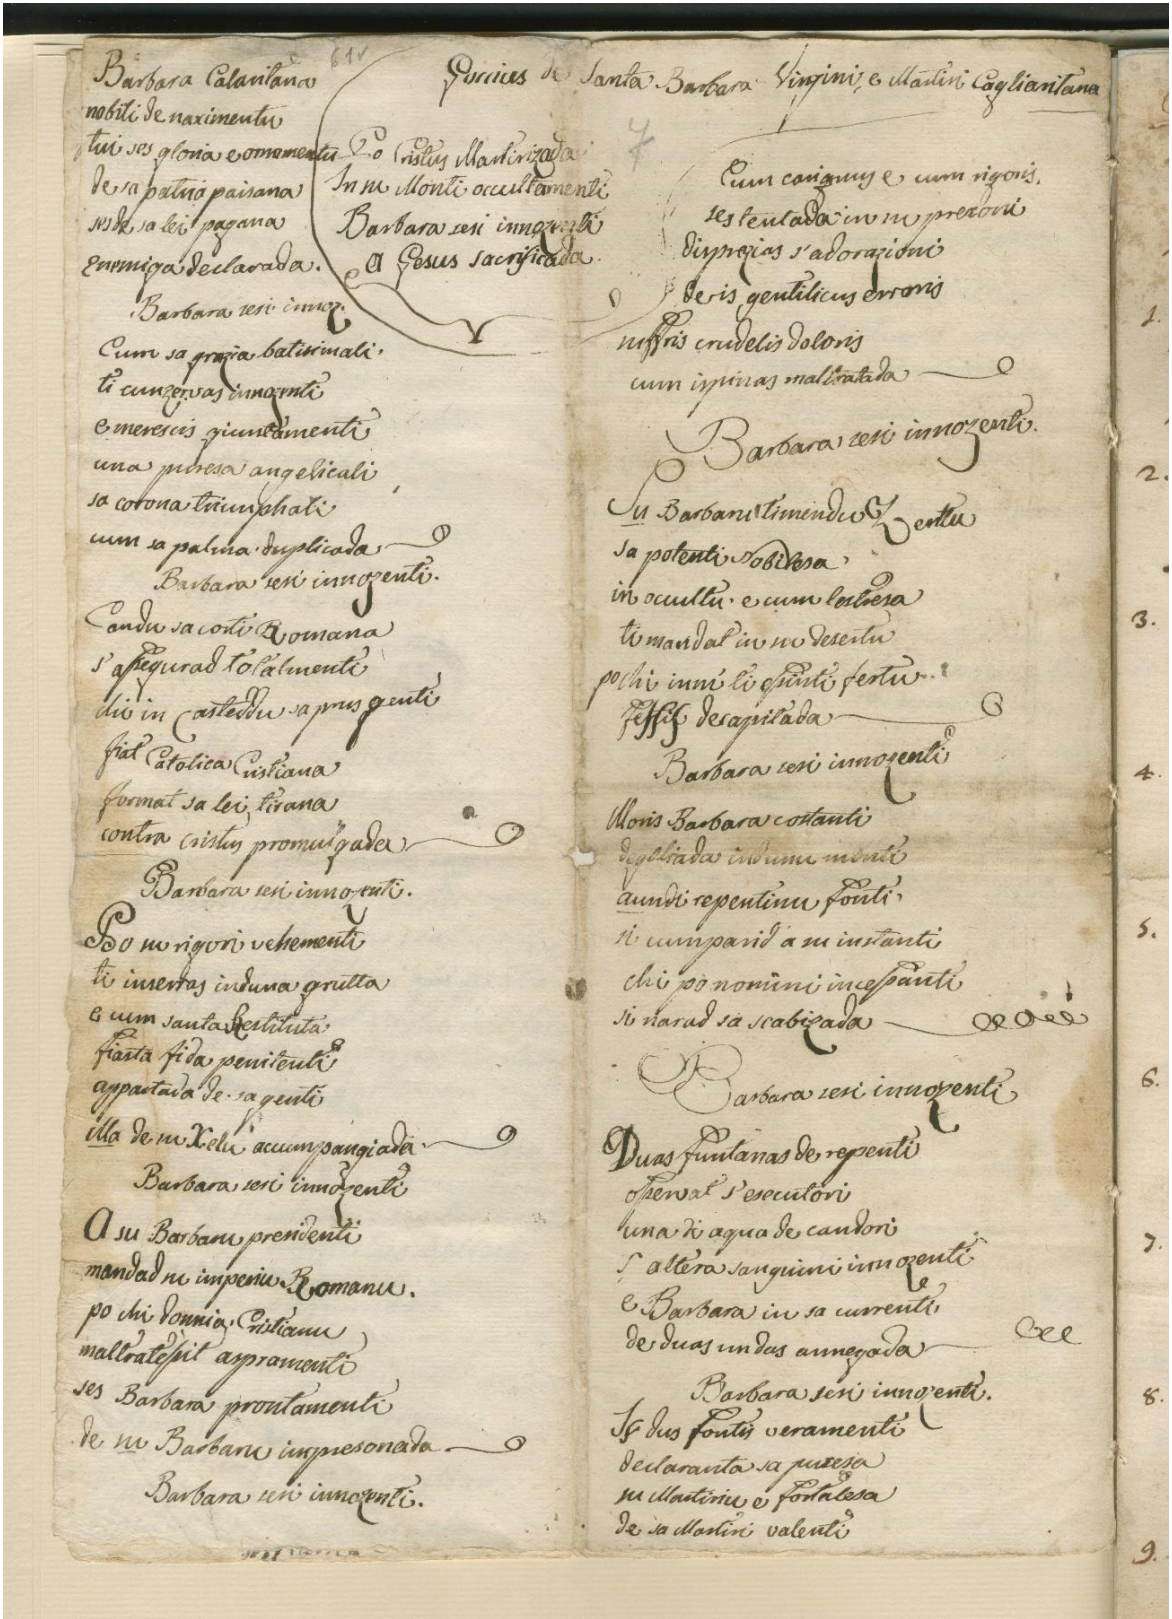 61v
Goccius de Santa Barbara Virgini, e Martiri Cagliaritana
7
Po Cristus Martirizada
In su Monti occultamenti
Barbara sesi innozenti
A Gesus sacrificada.
Barbara Calaritana
nobili de naximentu
tui ses gloria e ornamentu
de sa patria paisana
ses de sa lei pagana
enemiga declarada.
Barbara sesi innoz.
Cum sa grazia batisimali
ti cunzervas innozenti
e merescis giuntamenti
una puresa angelicali
sa corona triumphali
cum sa palma duplicada
Barbara sesi innozenti.
Candu sa corti Romana
s'assegurad totalmenti
chi in Casteddu sa prus genti
fiat Catolica Cristiana
format sa lei tirana
contra Cristus promulgada
Barbara sesi innozenti.
Po su rigori vehementi
ti inserras in duna grutta
e cum santa Restituta
fiasta fida penitenti
appartada de sa genti
illa de su Xelu accumpangiada
Barbara sesi innozenti
A su Barbaru presidenti
mandad su imperiu Romanu.
po chi donnia Cristianu
maltratessit aspramenti
ses Barbara prontamenti
de su Barbaru impresonada
Barbara sesi innozenti.
Cum carignus e cum rigoris,
ses tentada in su prezoni
disprezias s'adorazioni
de is gentilicus erroris
suffris crudelis doloris
cum ispinas maltratada
Barbara sesi innozenti.
Su Barbaru timendu Zertu
sa potenti Nobilesa
in occultu e cum lestresa
ti mandat in su desertu
po chi inni ti essinti fertu
zessis decapitada
Barbara sesi innozenti
Moris Barbara costanti
degoliada in dunu monti
aundi repentinu fonti
si cumparid a su instanti
chi po nomini incessanti
si narad sa scabizada
Barbara sesi innozenti
Duas funtanas de repenti
osservat s'esecutori
una di aqua de candori
s'altera sanguini innozenti
e Barbara in sa currenti
de duas undas annegada
Barbara sesi innozenti.
Is dus fontis veramenti
declaranta sa puresa
su Martiriu e fortalesa
de sa Martiri valenti
1.
2.
3.
4.
5.
6.
7.
8.
9.